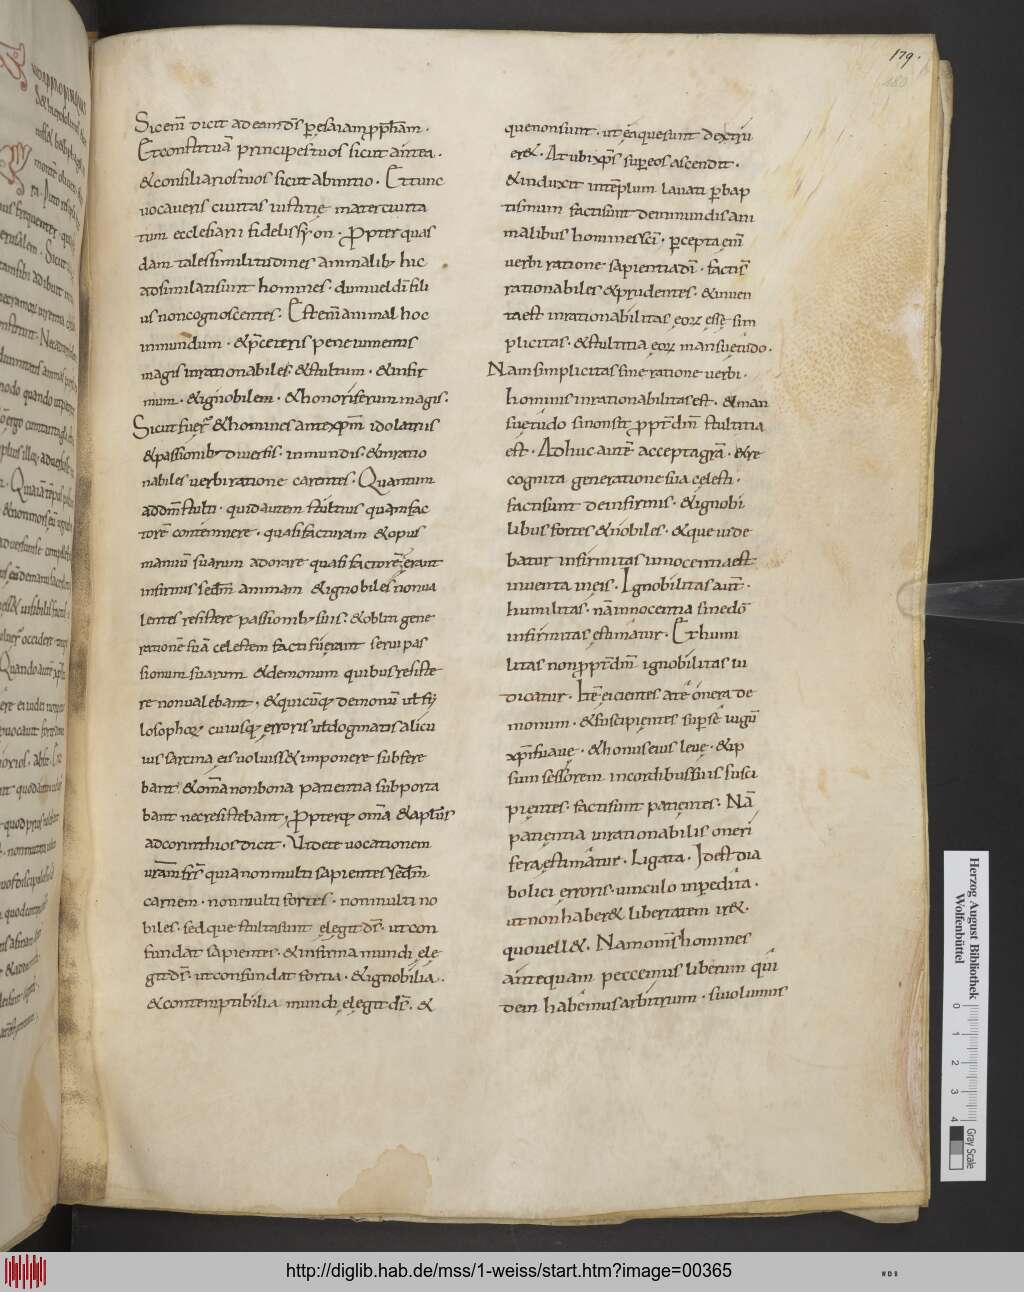 179.
180
Sic eni dicit ad eam ds per esaiam ppham.
Et constituā principes tuos sicut antea.
& consiliarios tuos sicut ab initio. Et tunc
uocaueris ciuitas iustitie mater ciuita
tum ecclesiarū fidelis syon. Propter quas
dam tales similitudines animalib; hic
adsimilati sunt homines. dum uel di fili
us non cognoscentes. Est eni animal hoc
inmundum. & p̄ ceteris pene iumentis
magis inrationabiles. & stultum. & infir
mum. & ignobilem. & honoriferum magis.
Sicut fuer̄ & homines ante xpm idolatriis
& passionib; diuersis. inmundis. & inratio
nabiles uerbi ratione carentes. Quantum
ad dm stulti. quid autem stultius quam fac
torē contemnere. quasi facturam & opus
manuū suarum adorare quasi factorē. erant
infirmi secdm animam & ignobiles non ua
lentes resistere passionib; suis. & obliti gene
rationē suā celestem facti fuerant serui pas
sionum suarum & demonum quibus resiste
re non ualebant. & quicūq; demonū uel fy
losophoꝝ cuiusq; erroris uel dogmatis alicu
ius sarcina eis uoluiss& imponere suffere
bant & omā non bona patientia subporta
bant nec resistebant. Propterq; omā & apłus
ad corinthios dicit. Uidete uocationem
uram frs quia non multi sapientes secdm
carnem. non multi fortes. non multi no
biles. sed que stulta sunt elegit ds. ut con
fundat sapientes. & infirma mundi ele
git ds. ut confundat fortia. & ignobilia.
& contemptibilia mundi elegit ds. &
que non sunt. ut ea que sunt dextru
er&. At ubi xps super eos ascendit.
& induxit in templum lauati p bap
tismum facti sunt de inmundis ani
malibus homines sci. pcepta eni
uerbi ratione sapientia di. facti s
rationabiles & prudentes. & inuen
ta est inrationabilitas eoꝝ esse sim
plicitas. & stultitia eoꝝ mansuetudo.
Nam simplicitas sine ratione uerbi.
hominis inrationabilitas est. & man
suetudo si non sit ppt dm stultitia
est. Adhuc autē accepta grā. & re
cognita generatione sua celesti.
facti sunt de infirmis. & ignobi
libus fortes & nobiles. & que uide
batur infirmitas innocentia est
inuenta in eis. Ignobilitas aut.
humilitas. nā innocentia sine dō
infirmitas estimatur. Et humi
litas non ppt dm ignobilitas iu
dicatur. Itē eicientes a te onera de
monum. & suscipientes super se iugū
xpi suaue. & honus eius leue. & ip
sum sessorem in cordibus suis susci
pientes. facti sunt patientes. Nā
patientia inrationabilis oneri
fera estimatur. Ligata. Id est dia
bolici erroris uinculo inpedita.
ut non haber& libertatem ir&.
quo uell&. Nam oms homines
antequam peccemus liberum qui
dem habemus arbitrium. si uolumus
Herzog August Bibliothek
Wolfenbüttel
0 1 2 3 4
Gray Scale
http://diglib.hab.de/mss/1-weiss/start.htm?image=00365